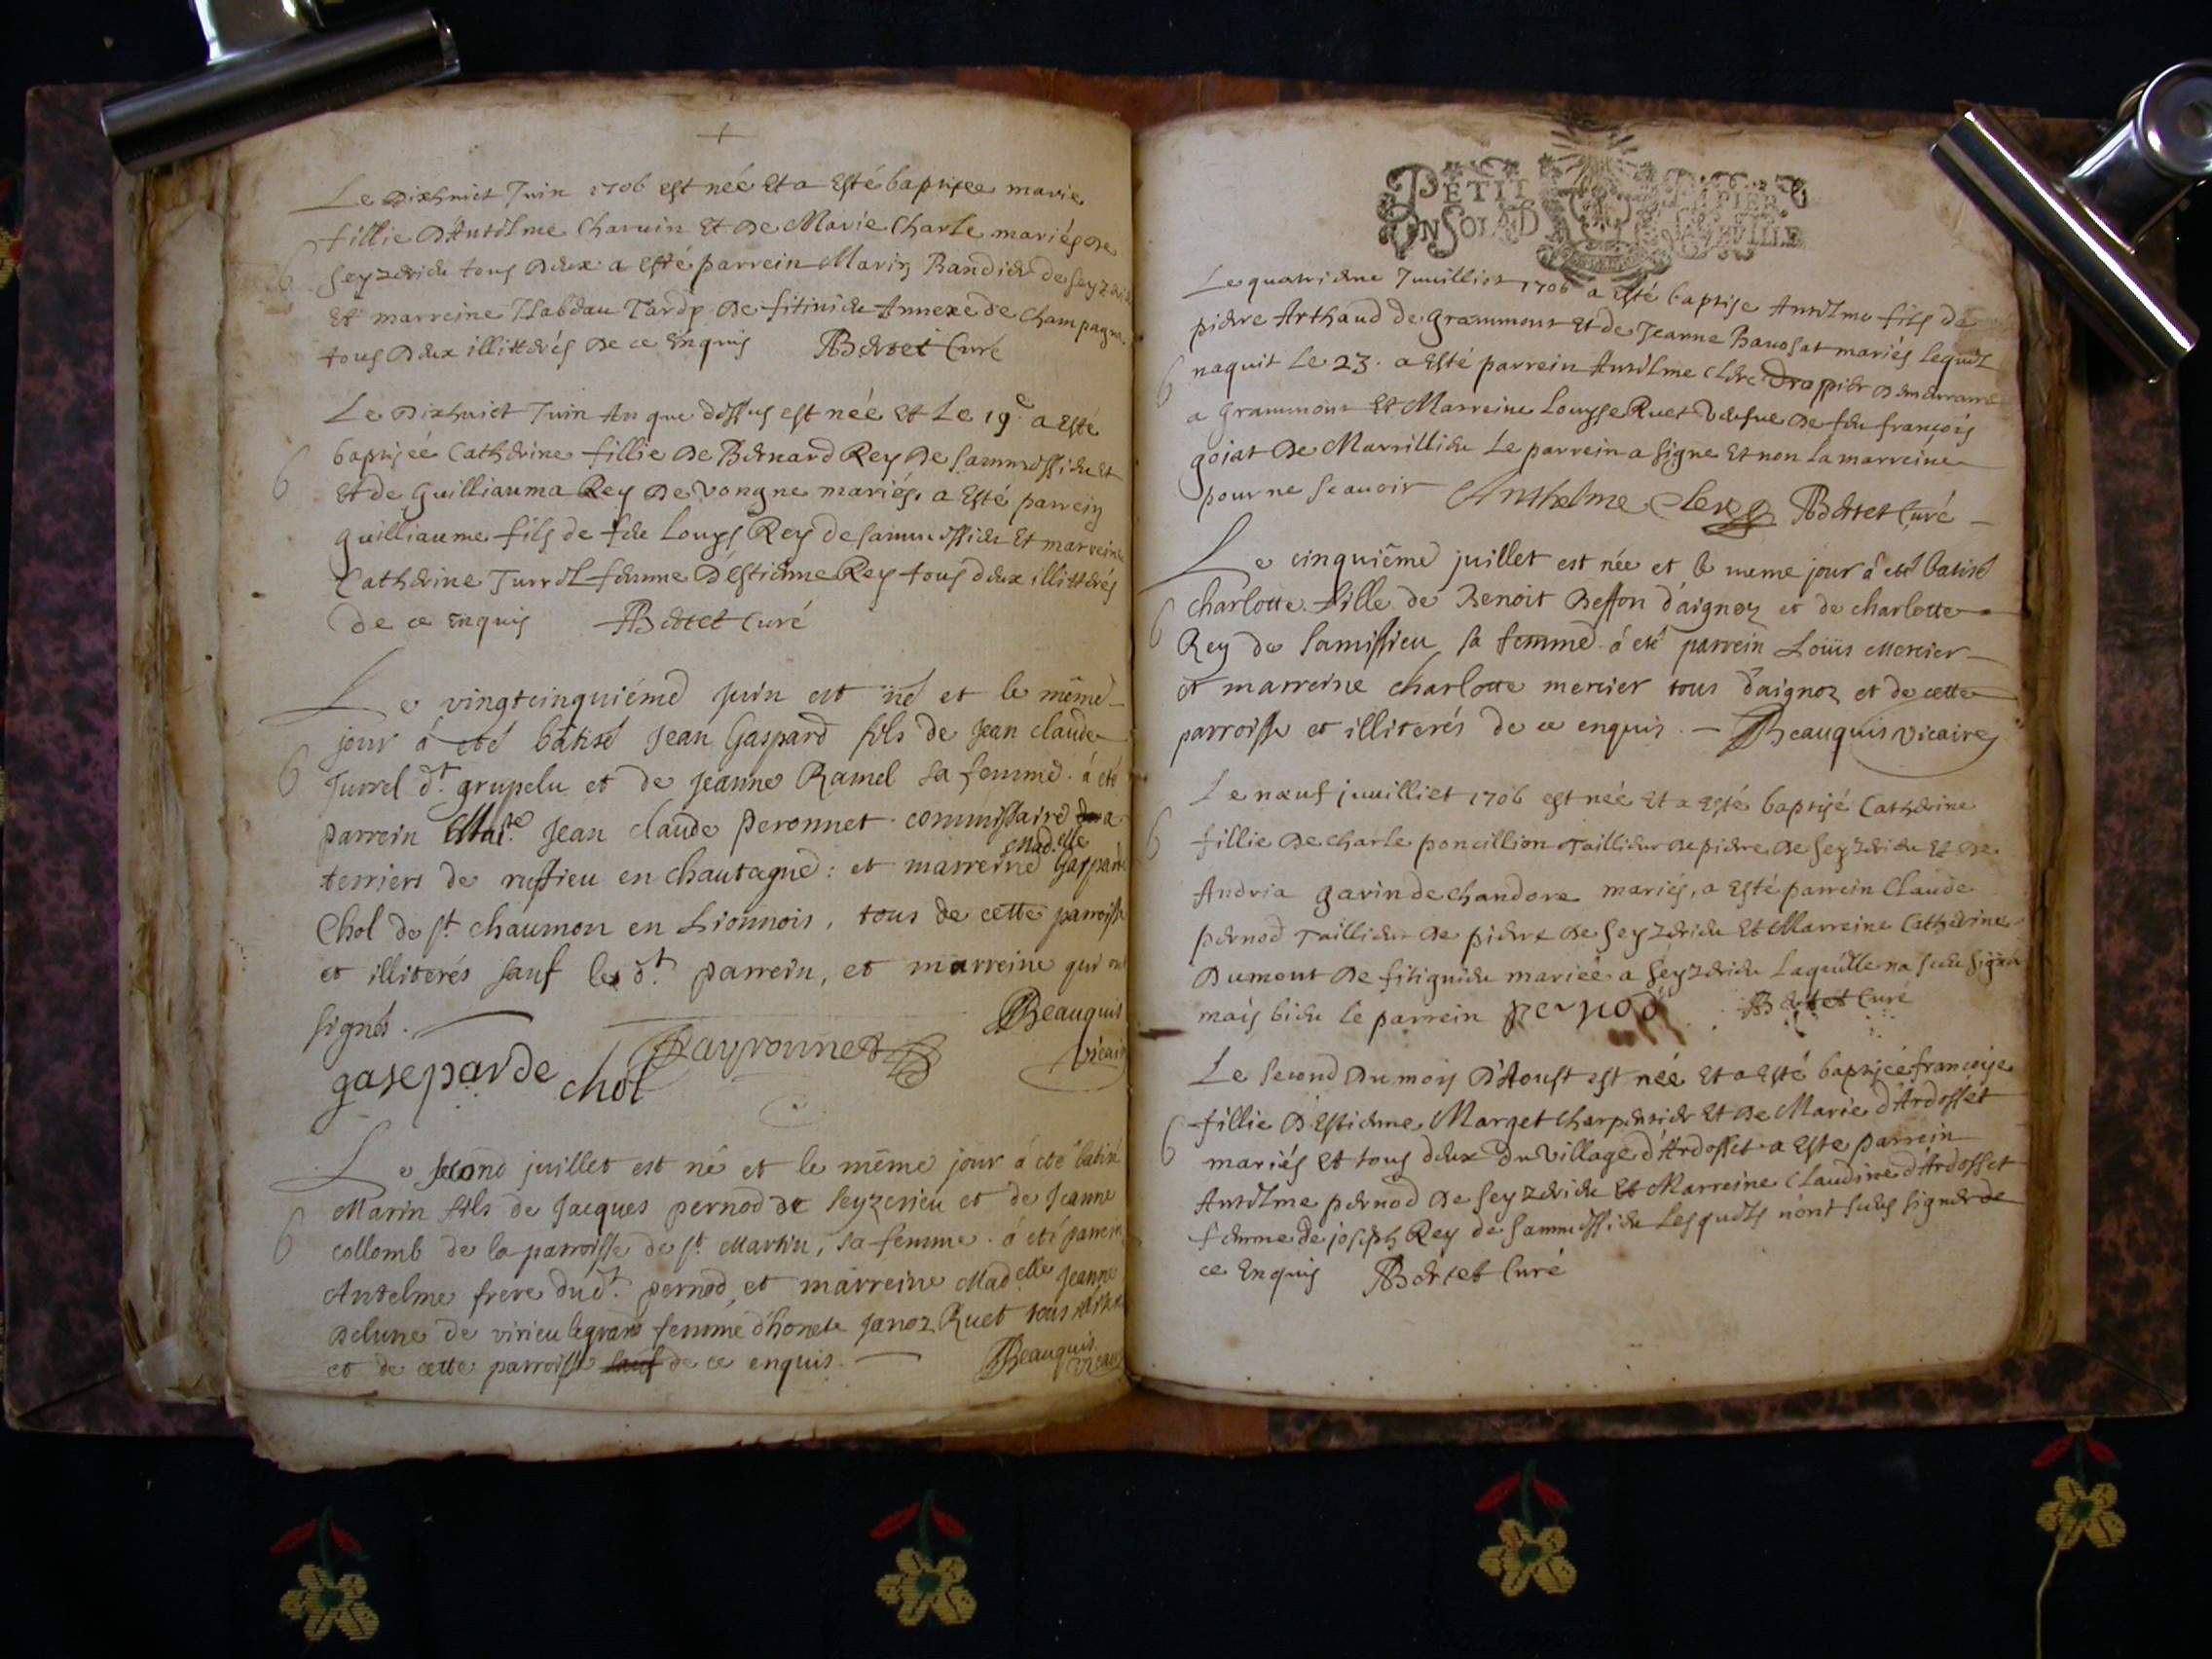 Le Dixhuict Juin 1706 est née Et a Esté baptisee marie
fillie D'Antelme Charuin Et De Marie Charle mariés De
Seyzerieu tous Deux a esté parrein Marin Bandier de Seyzerieu
Et marreine De fitinieu Annexe de Champagne
tous Deux illitterés De ce Enquis Bertet Curé
Le Dixhuict Juin An que dessus est née Et Le 19e a Esté
6 baptiseé Catherine fillie De Bernard Rey De Sammessieu Et
Et de Guilliauma Rey De vongne mariés. a Esté parrein
guilliaume fils de feu Louys Rey de Sammessieu Et marreine
Catherine Jurrel femme D'Estienne Rey tous deux illitterés
De ce Enquis Bertet Curé
Le vingtcinquiéme juin est né et le même
jour á eté bâtisé Jean Gaspard fils de Jean claude
6 Jurrel dt. grupelu et de Jeanne Ramel sa femme. á eté
parrein Jean claude Peronnet commissaire a
Mad.elle
terriers de ruffieu en chautagne : et marreine Gasparde
Chol de st. chaumon en Lionnois, tous de cette parroisse
et illiterés sauf les dt. parrein, et marreine qui ont
signés. Beauquis
gaseparde chol Payronnet vicaire
Le second juillet est né et le même jour á eté batisé
Marin fils de Jacques pernod de Seyzerieu et de Jeanne
6 collomb de la parroisse de st. Martin, sa femme. á eté parrein
Antelme frere dud.t pernod, et marreine Mad.elle Jeanne
Delune de virieu legrand femme d'honete Janoz Ruet tous
et de cette parroisse sauf de ce enquis. Beauquis vicaire
PETIT PAPIER
UN SOL LA FEUILLE
Le quatrieme Juuilliet 1706 a esté baptise Antelme fils de
pierre Arthaud de Grammont Et de Jeanne Bauosat mariés lequel
6 naquit Le 23. a Esté parrein Antelme Clerc Drapier Demeurant
a Grammont Et Marreine Louyse Ruet Veufue De feu françois
goiat De Marrillieu Le parrein a signe Et non la marreine
pour ne scauoir Anthelme Clerc Bertet Curé
Le cinquiême juillet est née et le meme jour á eté batisé
6 charlotte fille de Benoit Besson d'aignoz et de charlotte
Rey de Samissieu sa femme. á eté parrein Loüis Mercier
et marreine charlotte mercier tous d'aignoz et de cette
parroisse et illiterés de ce enquis. Beauquis vicaire
Le nœuf juuilliet 1706 est née Et a Esté baptisé Catherine
6 fillie De charle poncillion Taillieur de pierre, De Seyzerieu Et De
Andria garin de chandore mariés, a Esté parrein Claude
pernod Taillieur De pierre De Seyzerieu Et Marreine Catherine
Dumont De fitignieu marieé a Seyzerieu Laquelle na sceu signer
mais bieu le parrein pernod Bertet Curé
Le second Du mois D'Aoust est née Et a Esté baptiseé françoise
fillie D'Estienne Marget Charpentier Et De Marie d'Ardosset
6 mariés Et tous deux Du Village d'Ardosset a Este parrein
Antelme pernod De Seyzerieu Et Marreine Claudine d'Ardosset
femme de joseph Rey de Sammessieu Lesquels n'ont sceus signer de
ce Enquis Bertet Curé